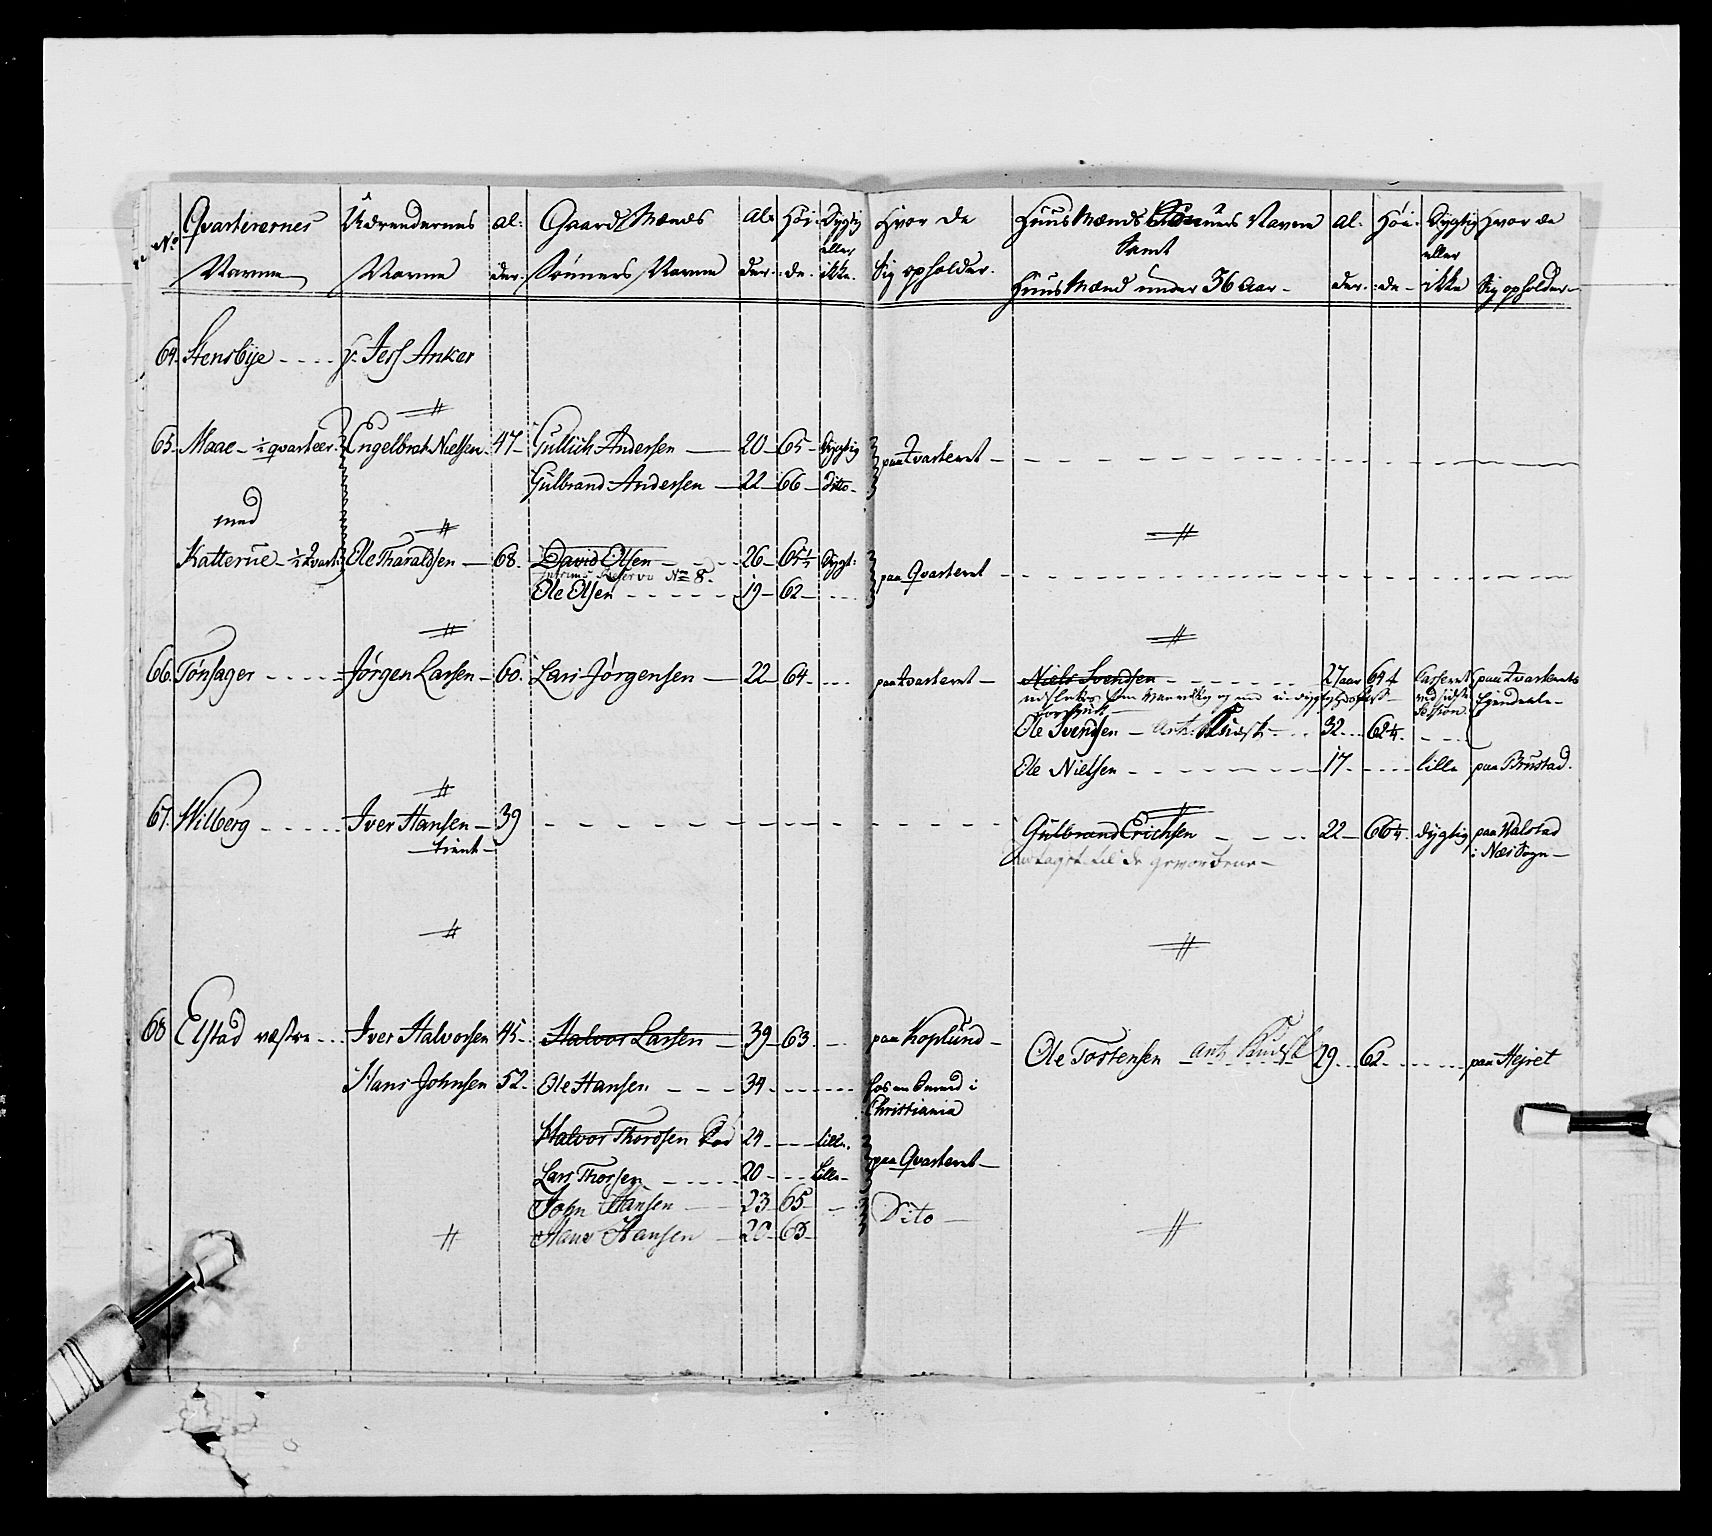 No Qvarterernes Navne
Værendernes Navne
Al: der.
Gaard Mænds Sønners Navne
Al: der.
Høi: de.
Dygtig eller ikke.
Hvor de Sig opholder.
Huus Mænds Sønners Navne
Samt
Huus Mænd under 36 Aar -
Al. der.
Høi: de -
Dygtig eller ikke
Hvor de Sig opholder -
64. Stensbye - - - - Jess Anker
65. Maae - 1/2 qvarteer. Engelbret Nielsen. 47 - Gullich Andersen - 20 - 65 - Dygtig paa Qvarteret -
Gulbrand Andersen - 22 - 66 - Ditto -
med
Katterue - 1/2 Qvart: Ole Tharaldsen - 68. David Olsen - - 26 - 65 1/2 Dygt: paa Qvarteret -
Reserve No 8.
Ole Olsen - - - - - 19 - 62 - - - -
66. Tønsager - - - - Jørgen Larsen - 60. Lars Jørgensen - 22 - 64 - - - - paa Qvarteret - Niels Svendsen - - - - - 27 aar 64 1/2 Casseret paa Qvarterets
ved sidste Session Eyendeele -
Ole Svendsen - Ant: - - 32 - - 62 1/2 - - - -
Ole Nielsen - - - - - - 17 - - - - lille paa Brustad.
67. Wilberg - - - - - Iver Hansen - 39 - - - - - Gulbrand Erichsen - - - - 22 - 66 1/2 dygtig paa Walstad
tient - i Næs Sogn -
til de gevorbene -
68 Elstad væstre - - - Iver Halvorsen 45 - Halvor Larsen - 39 - 63 - - paa Koplund - Ole Tostensen - Ant: 29 - - 62 - - - - - paa Hejret
Hans Johnsen 52 - Ole Hansen - - - 34 - - - - - hos en Smed i
Christiania
Halvor Thorsen 24 - - - - lill.
Lars Thorsen - - - - - 20 - - - lille - paa Qvarteret -
John Hansen - - 23 - 65 - - - Dito -
Hans Hansen - 20 - 63 -